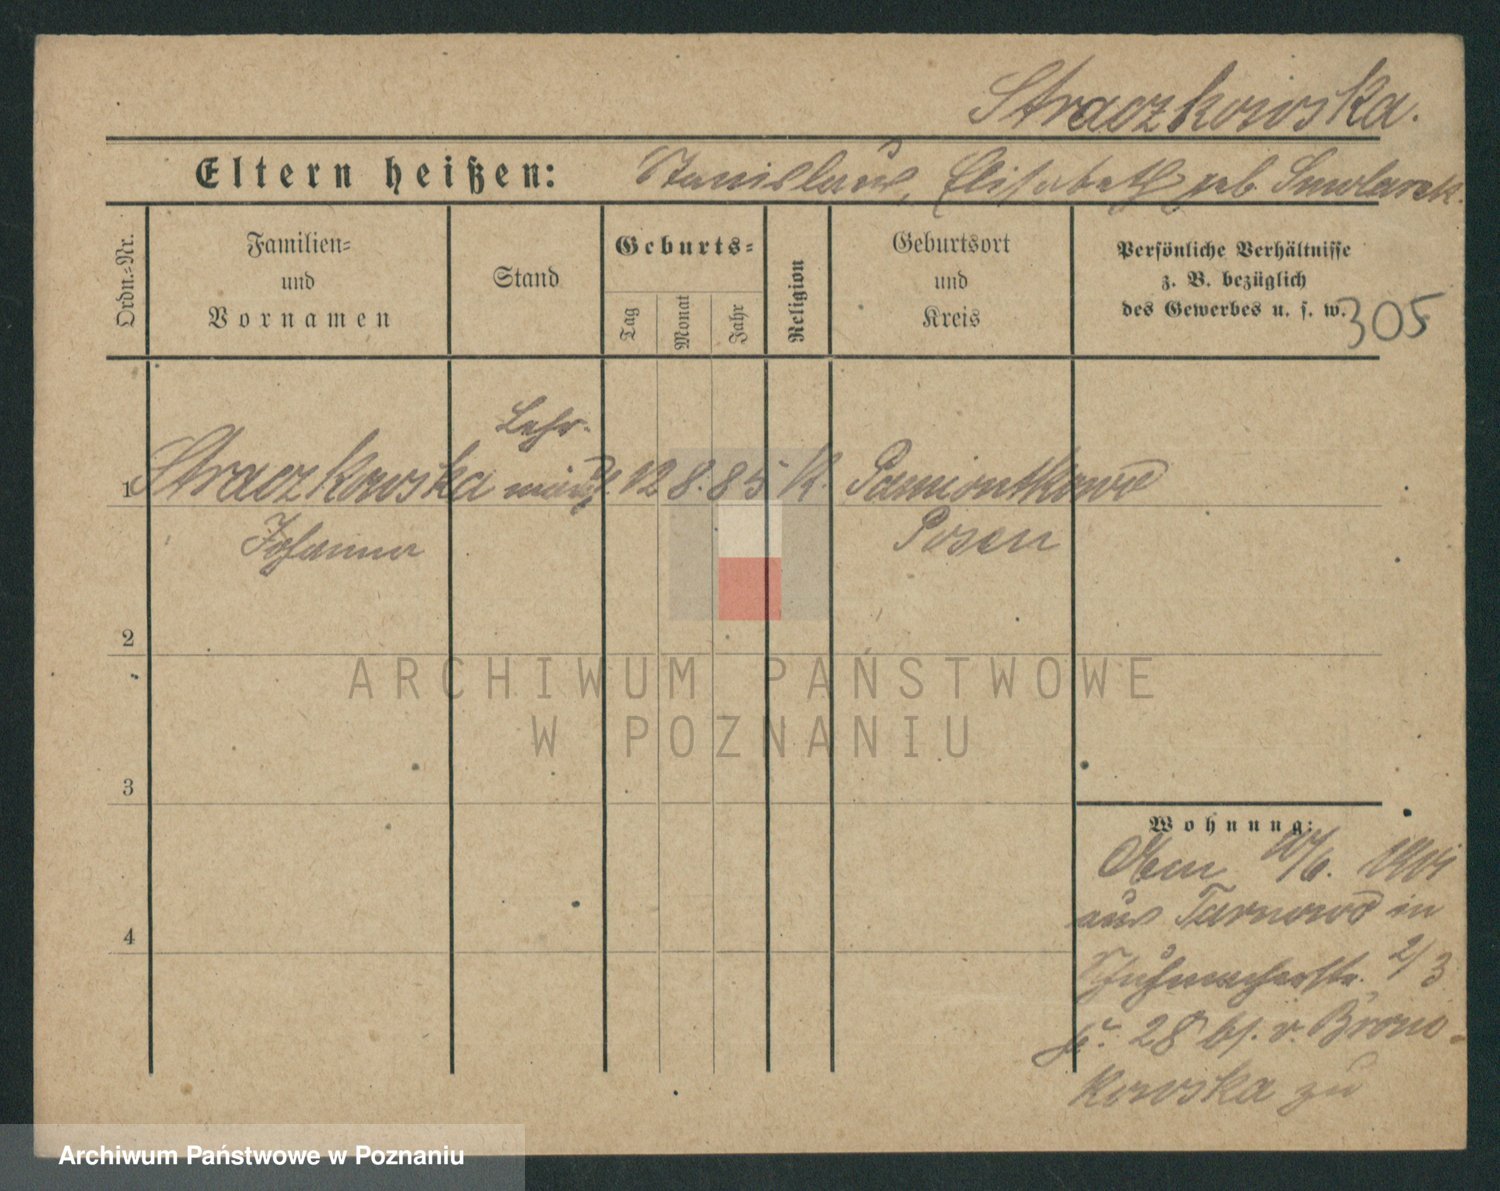 Straczkowska.
Eltern heißen: Stanislaus, Elisabeth geb. Smolarek.
Ordn.-Nr.
Familien-
und
Vornamen
Stand
Geburts-
Tag
Monat
Jahr
Religion
Geburtsort
und
Kreis
Persönliche Verhältnisse
z. B. bezüglich
des Gewerbes u. s. w.
305
Lehr-
1 Straczkowska 12 8. 85 K. Pamiontkowo
Johanna Posen
2
ARCHIWUM PAŃSTWOWE
W POZNANIU
3
4
Wohnung:
/6. 1901
aus Tarnowo in
Schuhmacherstr. 2/3
28 bs. v. Brons-
kowska zu
Archiwum Państwowe w Poznaniu